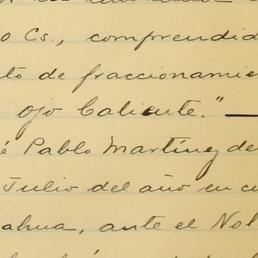 o Cs., comprendid
to de fraccionamie
ojo Caliente."
é Pablo Martínez del
Julio del año en cu
ahua, ante el Not